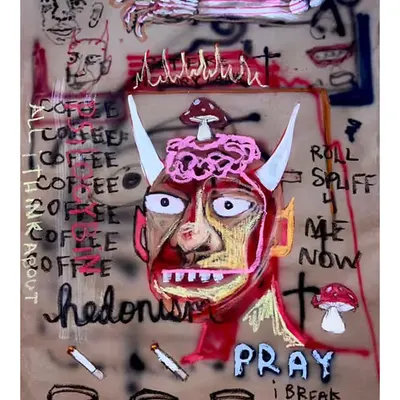 COFFEE
COFFEE
COFFEE
COFFEE
COFFEE
COFFEE
COFFEE
ALL I THINK ABOUT
PSILOCYBIN
ROLL
SPLIFF
4
ME
NOW
hedonism
PRAY
i BREAK